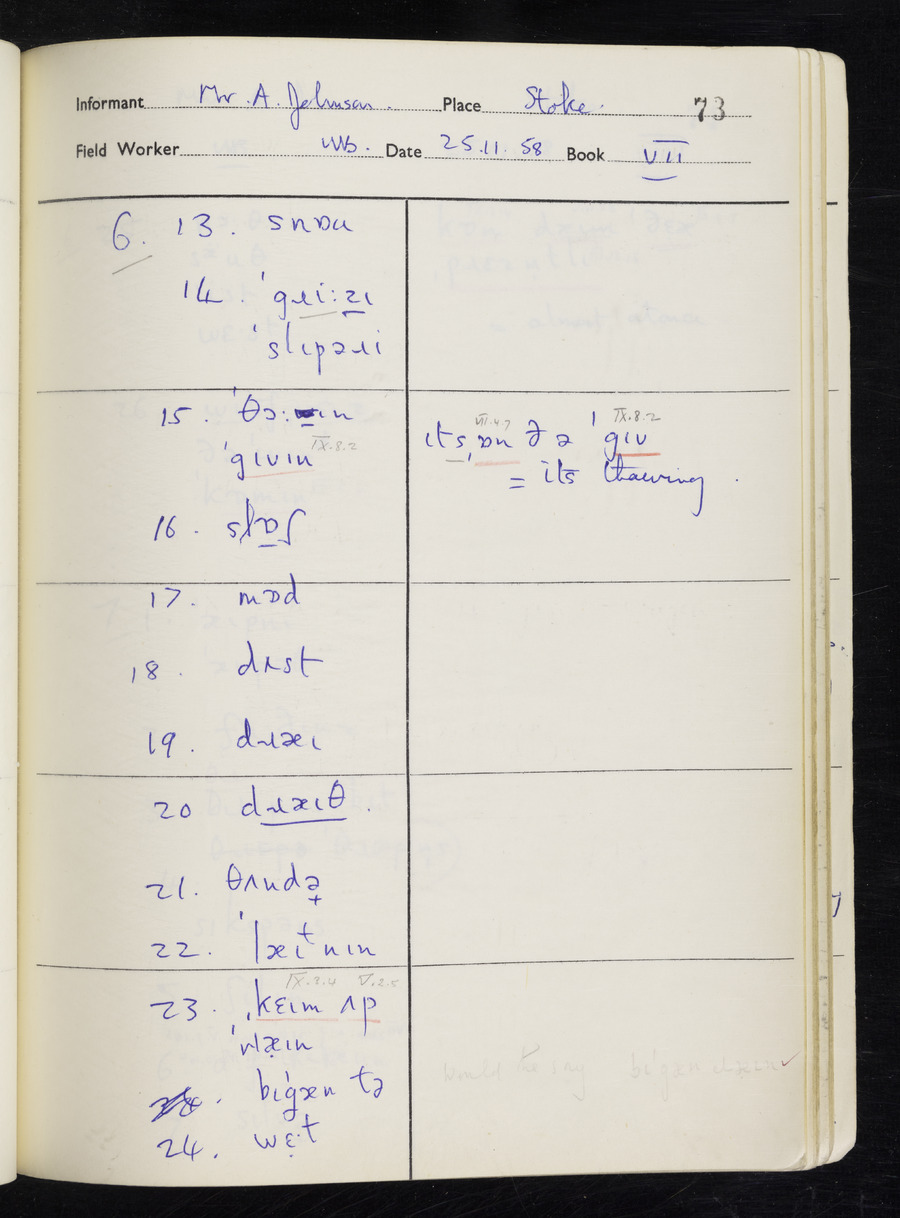 Informant Mr. A. Johnson. Place Stoke. 73
Field Worker Date 25.11.58 Book VII
6. 13. snɒu
14. ˈgɹi:zɪ
ˈslɪpəɹi
15. ˈθɔ:ɪn
ˈgɪvɪn IX.8.2
ɪts ˌɒn ðə ˈgɪv VII.4.7 IX.8.2
= its thawing.
16. slaʃ
17. mɒd
18. dʌst
19. dɹæɪ
20 dɹæɪθ.
21. θʌndə
22. ˈlæɪtnɪn
IX.3.4 V.2.5
23. ˌkɛɪm ʌp
ˈɹæɪn
would the say bɪˈgæn ✓
bɪˈgæn tə
24. wɛt